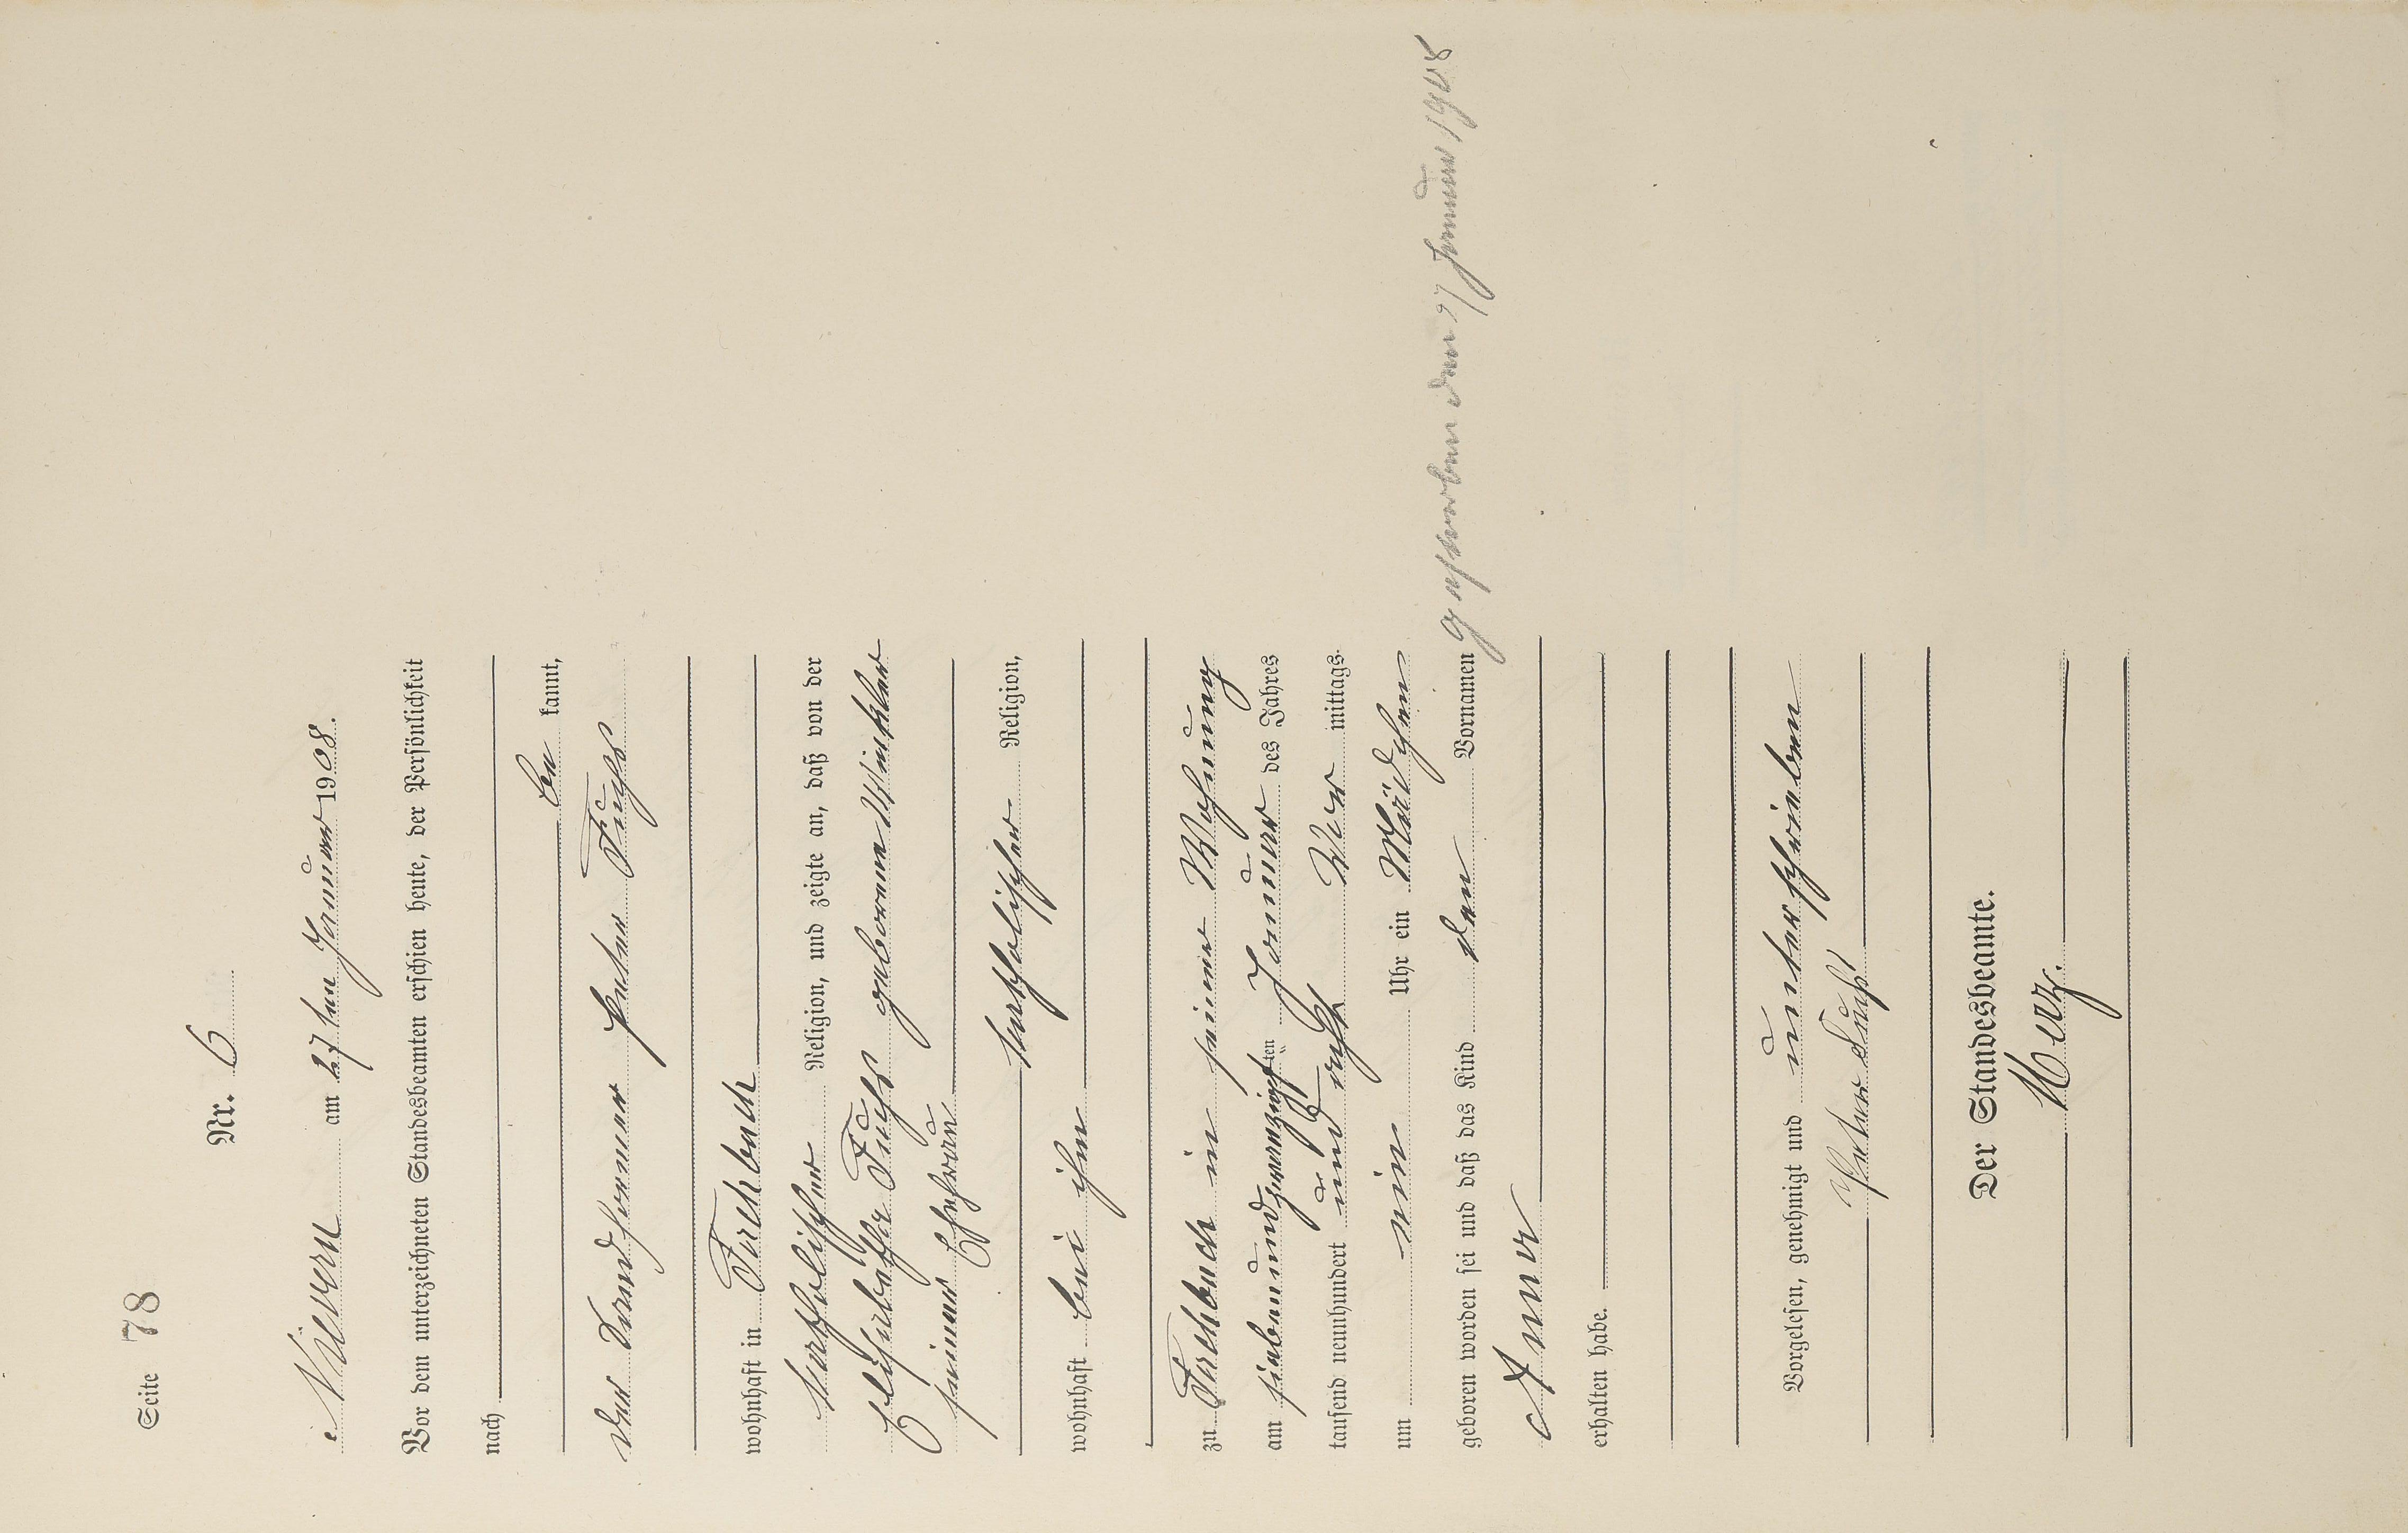 Seite 78
Nr. 6
Nievern am 27ten Januar 1908.
Vor dem unterzeichneten Standesbeamten erschien heute, der Persönlichkeit
nach
be kannt,
der Peter Fuchs
wohnhaft in Fachbach
katholischer Religion, und zeigte an, daß von der
Elisabetha Fuchs geborene Winkler
seiner Ehefrau
katholischer Religion,
wohnhaft bei ihm
zu Fachbach in seiner Wohnung
am siebenundzwanzigsten Januar des Jahres
tausend neunhundert und acht Vor mittags
um ein Uhr ein Mädchen
geboren worden sei und daß das Kind den Vornamen
Anna
erhalten habe.
gestorben den 27 Januar 1908
Vorgelesen, genehmigt und unterschrieben
Peter Fuchs
Der Standesbeamte.
Merz.